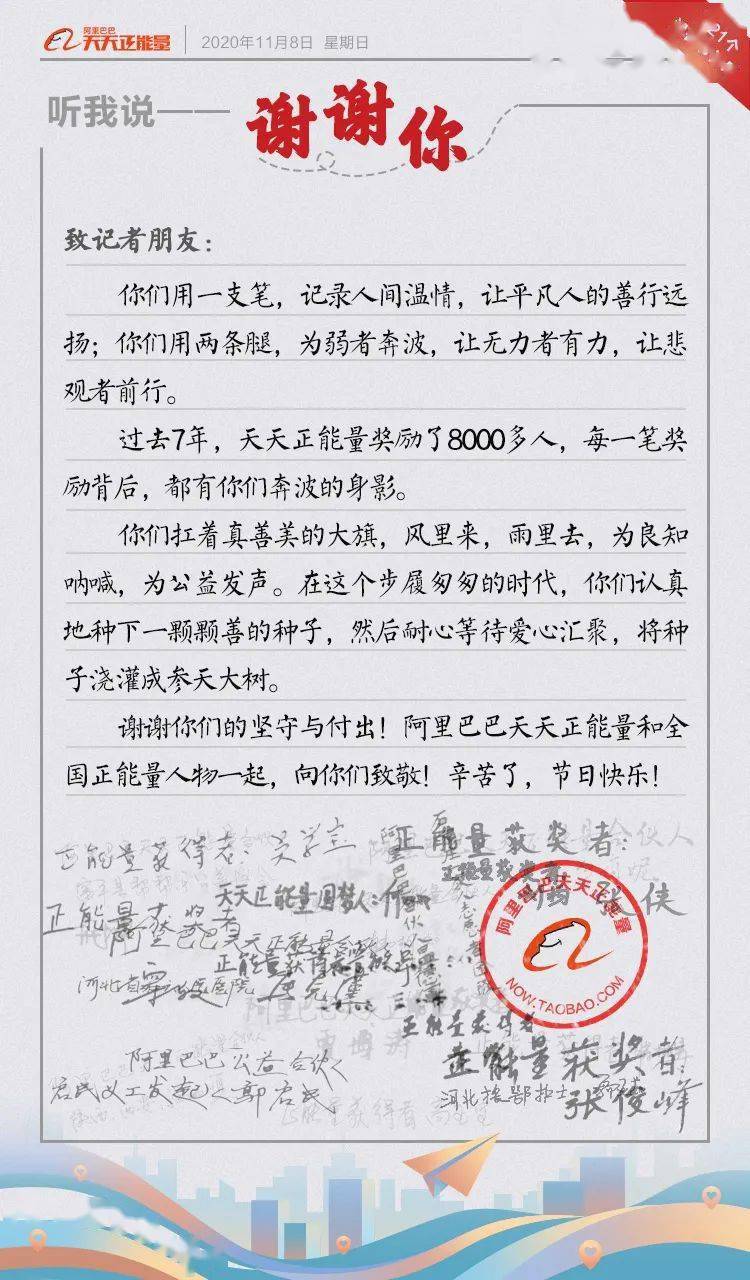 阿里巴巴
天天正能量
2020年11月8日 星期日
21个
听我说——谢谢你
致记者朋友：
你们用一支笔，记录人间温情，让平凡人的善行远
扬；你们用两条腿，为弱者奔波，让无力者有力，让悲
观者前行。
过去7年，天天正能量奖励了8000多人，每一笔奖
励背后，都有你们奔波的身影。
你们扛着真善美的大旗，风里来，雨里去，为良知
呐喊，为公益发声。在这个步履匆匆的时代，你们认真
地种下一颗颗善的种子，然后耐心等待爱心汇聚，将种
子浇灌成参天大树。
谢谢你们的坚守与付出！阿里巴巴天天正能量和全
国正能量人物一起，向你们致敬！辛苦了，节日快乐！
正能量获得者：
正能量获奖者：
正能量获奖者
天天正能量圆梦人：
张侠
正能量获奖者
阿里巴巴天天正能量
阿里巴巴天天正能量
NOW.TAOBAO.COM
正能量获得者
阿里巴巴公益合伙人
正能量获奖者：
启民义工发起人郭启民
河北援鄂护士
张俊峰
正能量获得者